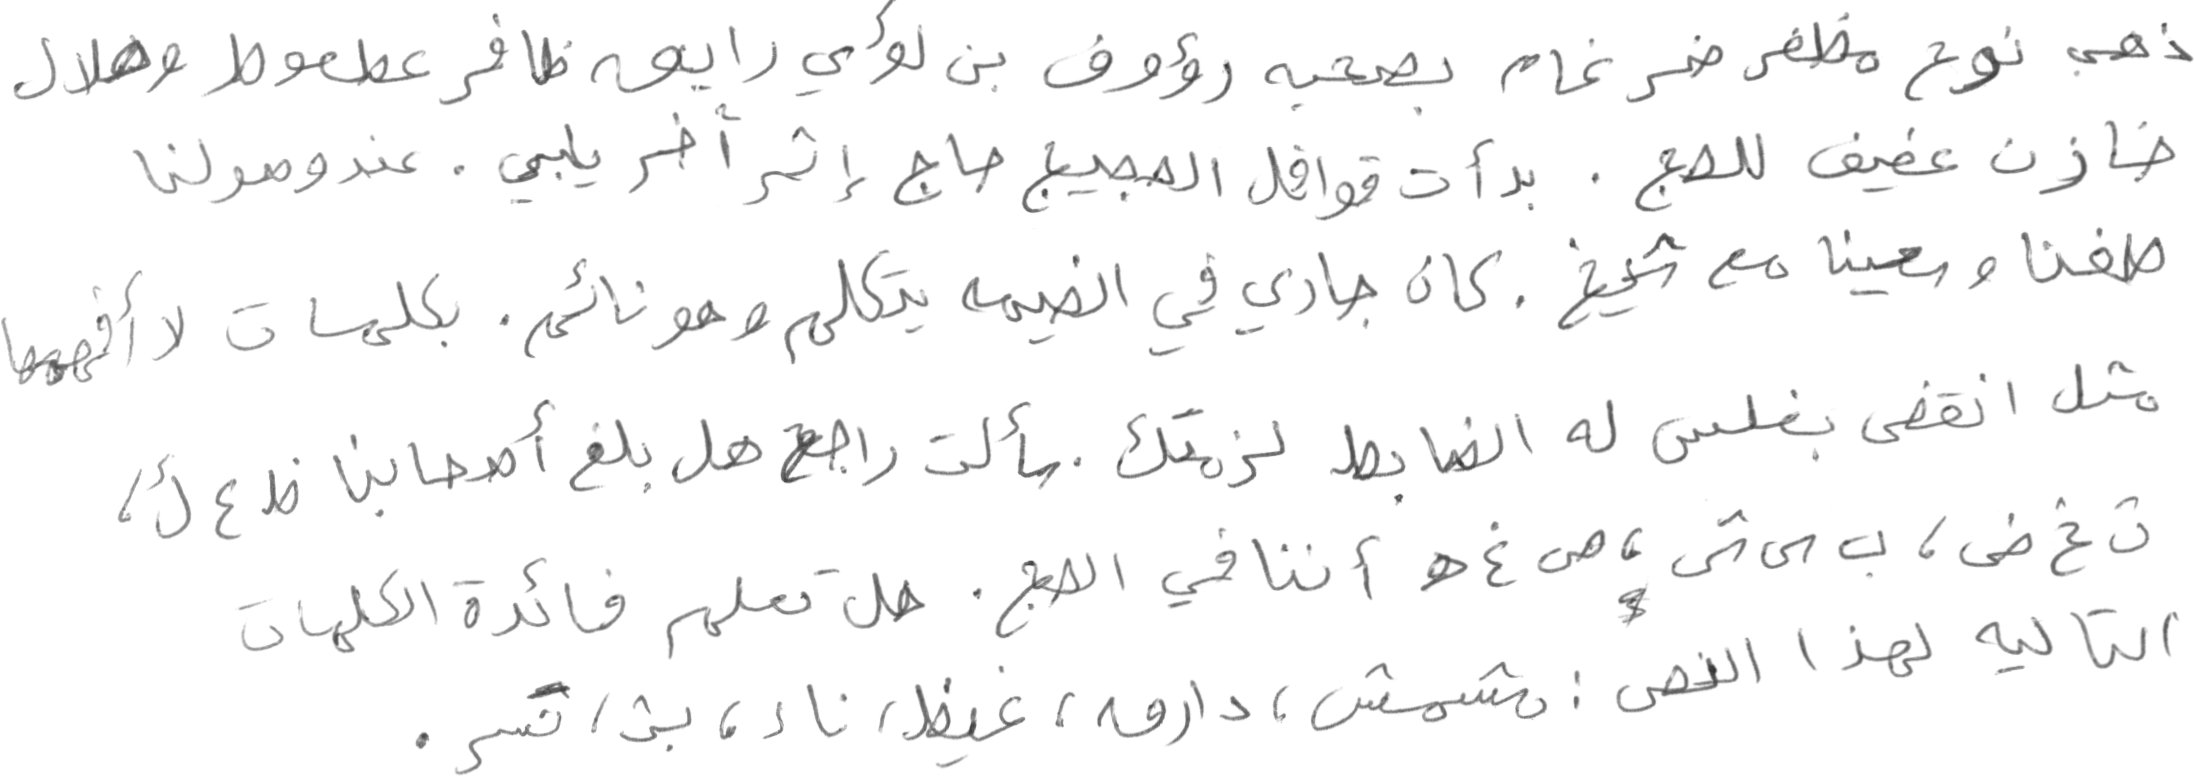 ذهب نوح مظفر ضرغام بصحبه رؤوف بن لؤي رايق ظافر عطعوط وهلال
خازن عفيف للحج . بدأت قوافل الحجيج حاج إثر أخر يلبي . عند وصولنا
طفنا وسعينا مع شيخ . كان جاري في الخيمه يتكلم وهو نائم . بكلمات لا أفهمها
مثل انقض بغلس له الضابط لزمتك . سألت راجح هل بلغ أصحابنا ظ ع ك،
ث خ ض، ب س ش، ص غ ه أننا في الحج . هل تعلم فائدة الكلمات
التاليه لهذا النص : مشمش، دارق، غيظ، ناء، بث، تسر .